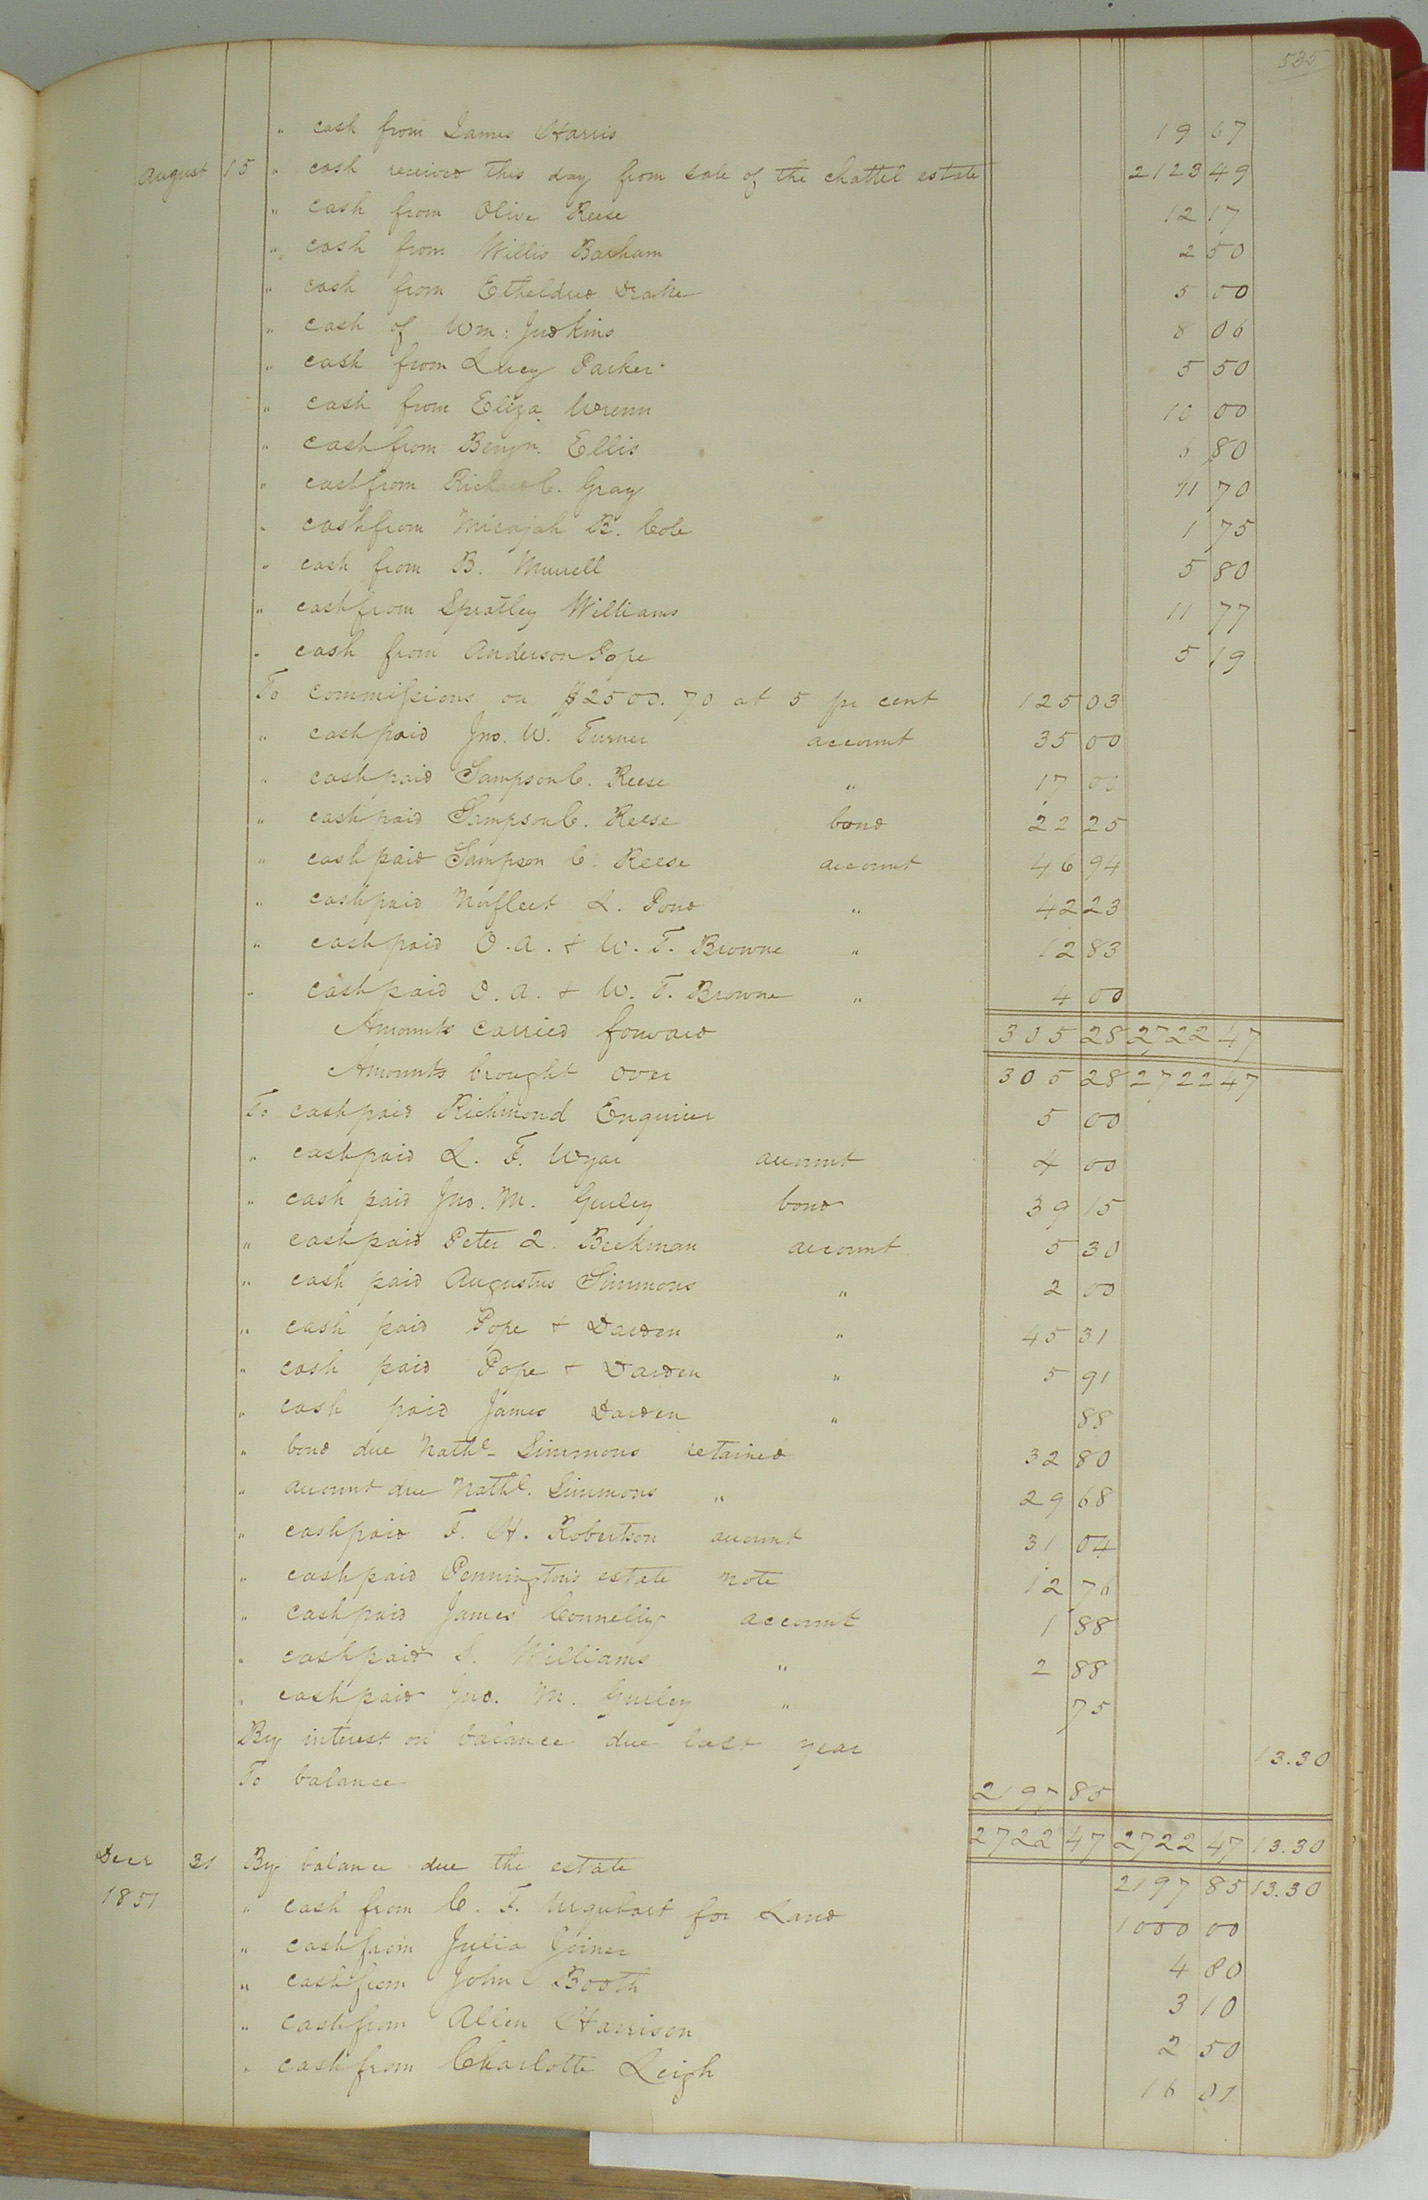 535
" cash from James Harris 19 67
August 15 " cash received this day from sale of the chattel estate 2123 49
" cash from Olive Reese 12 17
" cash from Willis Barham 2 50
" cash from Etheldred Drake 5 00
" cash of Wm: Judkins 8 06
" cash from Lucy Parker 5 50
" cash from Eliza Wrenn 10 00
" cash from Benjn. Ellis 80
" cash from Richard C. Gray 11 70
" cash from Micajah B. Cole 1 75
" cash from B. Murrell 5 80
" cash from Spratley Williams 11 77
" cash from Anderson Pope 5 19
To commissions on $2500.70 at 5 pr cent 125 03
" cash paid Jno. W. Turner account 35 00
" cash paid Sampson C. Reese " 17 00
" cash paid Sampson C. Reese bond 22 25
" cash paid Sampson C. Reese account 46 94
" cash paid Norfleet L. Pond " 42 23
" cash paid O. A. & W. T. Browne " 12 83
" cash paid O. A. & W. T. Browne " 4 00
Amounts carried forward 305 28 2722 47
Amounts brought over 305 28 2722 47
To cash paid Richmond Enquirer 5 00
" cash paid L. F. account 4 00
" cash paid Jno. M. Gurley bond 39 15
" cash paid Peter Z. Beekman account 5 30
" cash paid Augustus Simmons " 2 00
" cash paid Pope & Darden " 45 31
" cash paid Pope & Darden " 5 91
" cash paid James Darden " 88
" bond due Nathl. Simmons retained 32 80
" account due Nathl. Simmons " 29 68
" cash paid F. H. Robertson account 31 04
" cash paid Pennington's estate note 12 76
" cash paid James Connelly account 1 88
" cash paid S. Williams " 2 88
" cash paid Jno. M. Gurley " 75
By interest on balance due last year 13.30
To balance 2197 85
2722 47 2722 47 13.30
Decr 31 By balance due the estate 2197 85 13.30
1851 " cash from C. F. Urquhart for Land 1000 00
" cash from Julia Joiner 4 80
" cash from John Booth 3 10
" cash from Allen Harrison 2 50
" cash from Charlotte Leigh 16 01